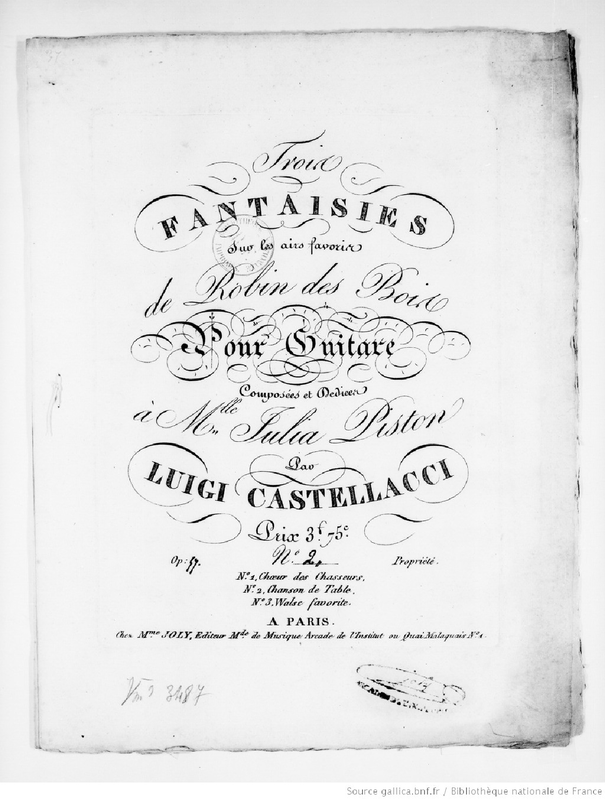 Trois
FANTAISIES
Sur les airs favoris
de Robin des Bois
Pour Guitare
Composées et Dediées
à M.lle Julia Piston
Par
LUIGI CASTELLACCI
Prix 3f 75c
Op: 57. N.o 2, Propriété.
N.o 1, Chœur des Chasseurs,
N.o 2, Chanson de Table,
N.o 3, Walse favorite,
A PARIS.
Chez Mme JOLY, Editeur Mde de Musique Arcade de l'Institut ou Quai Malaquais No 1.
Vm9 3487
Source gallica.bnf.fr / Bibliothèque nationale de France